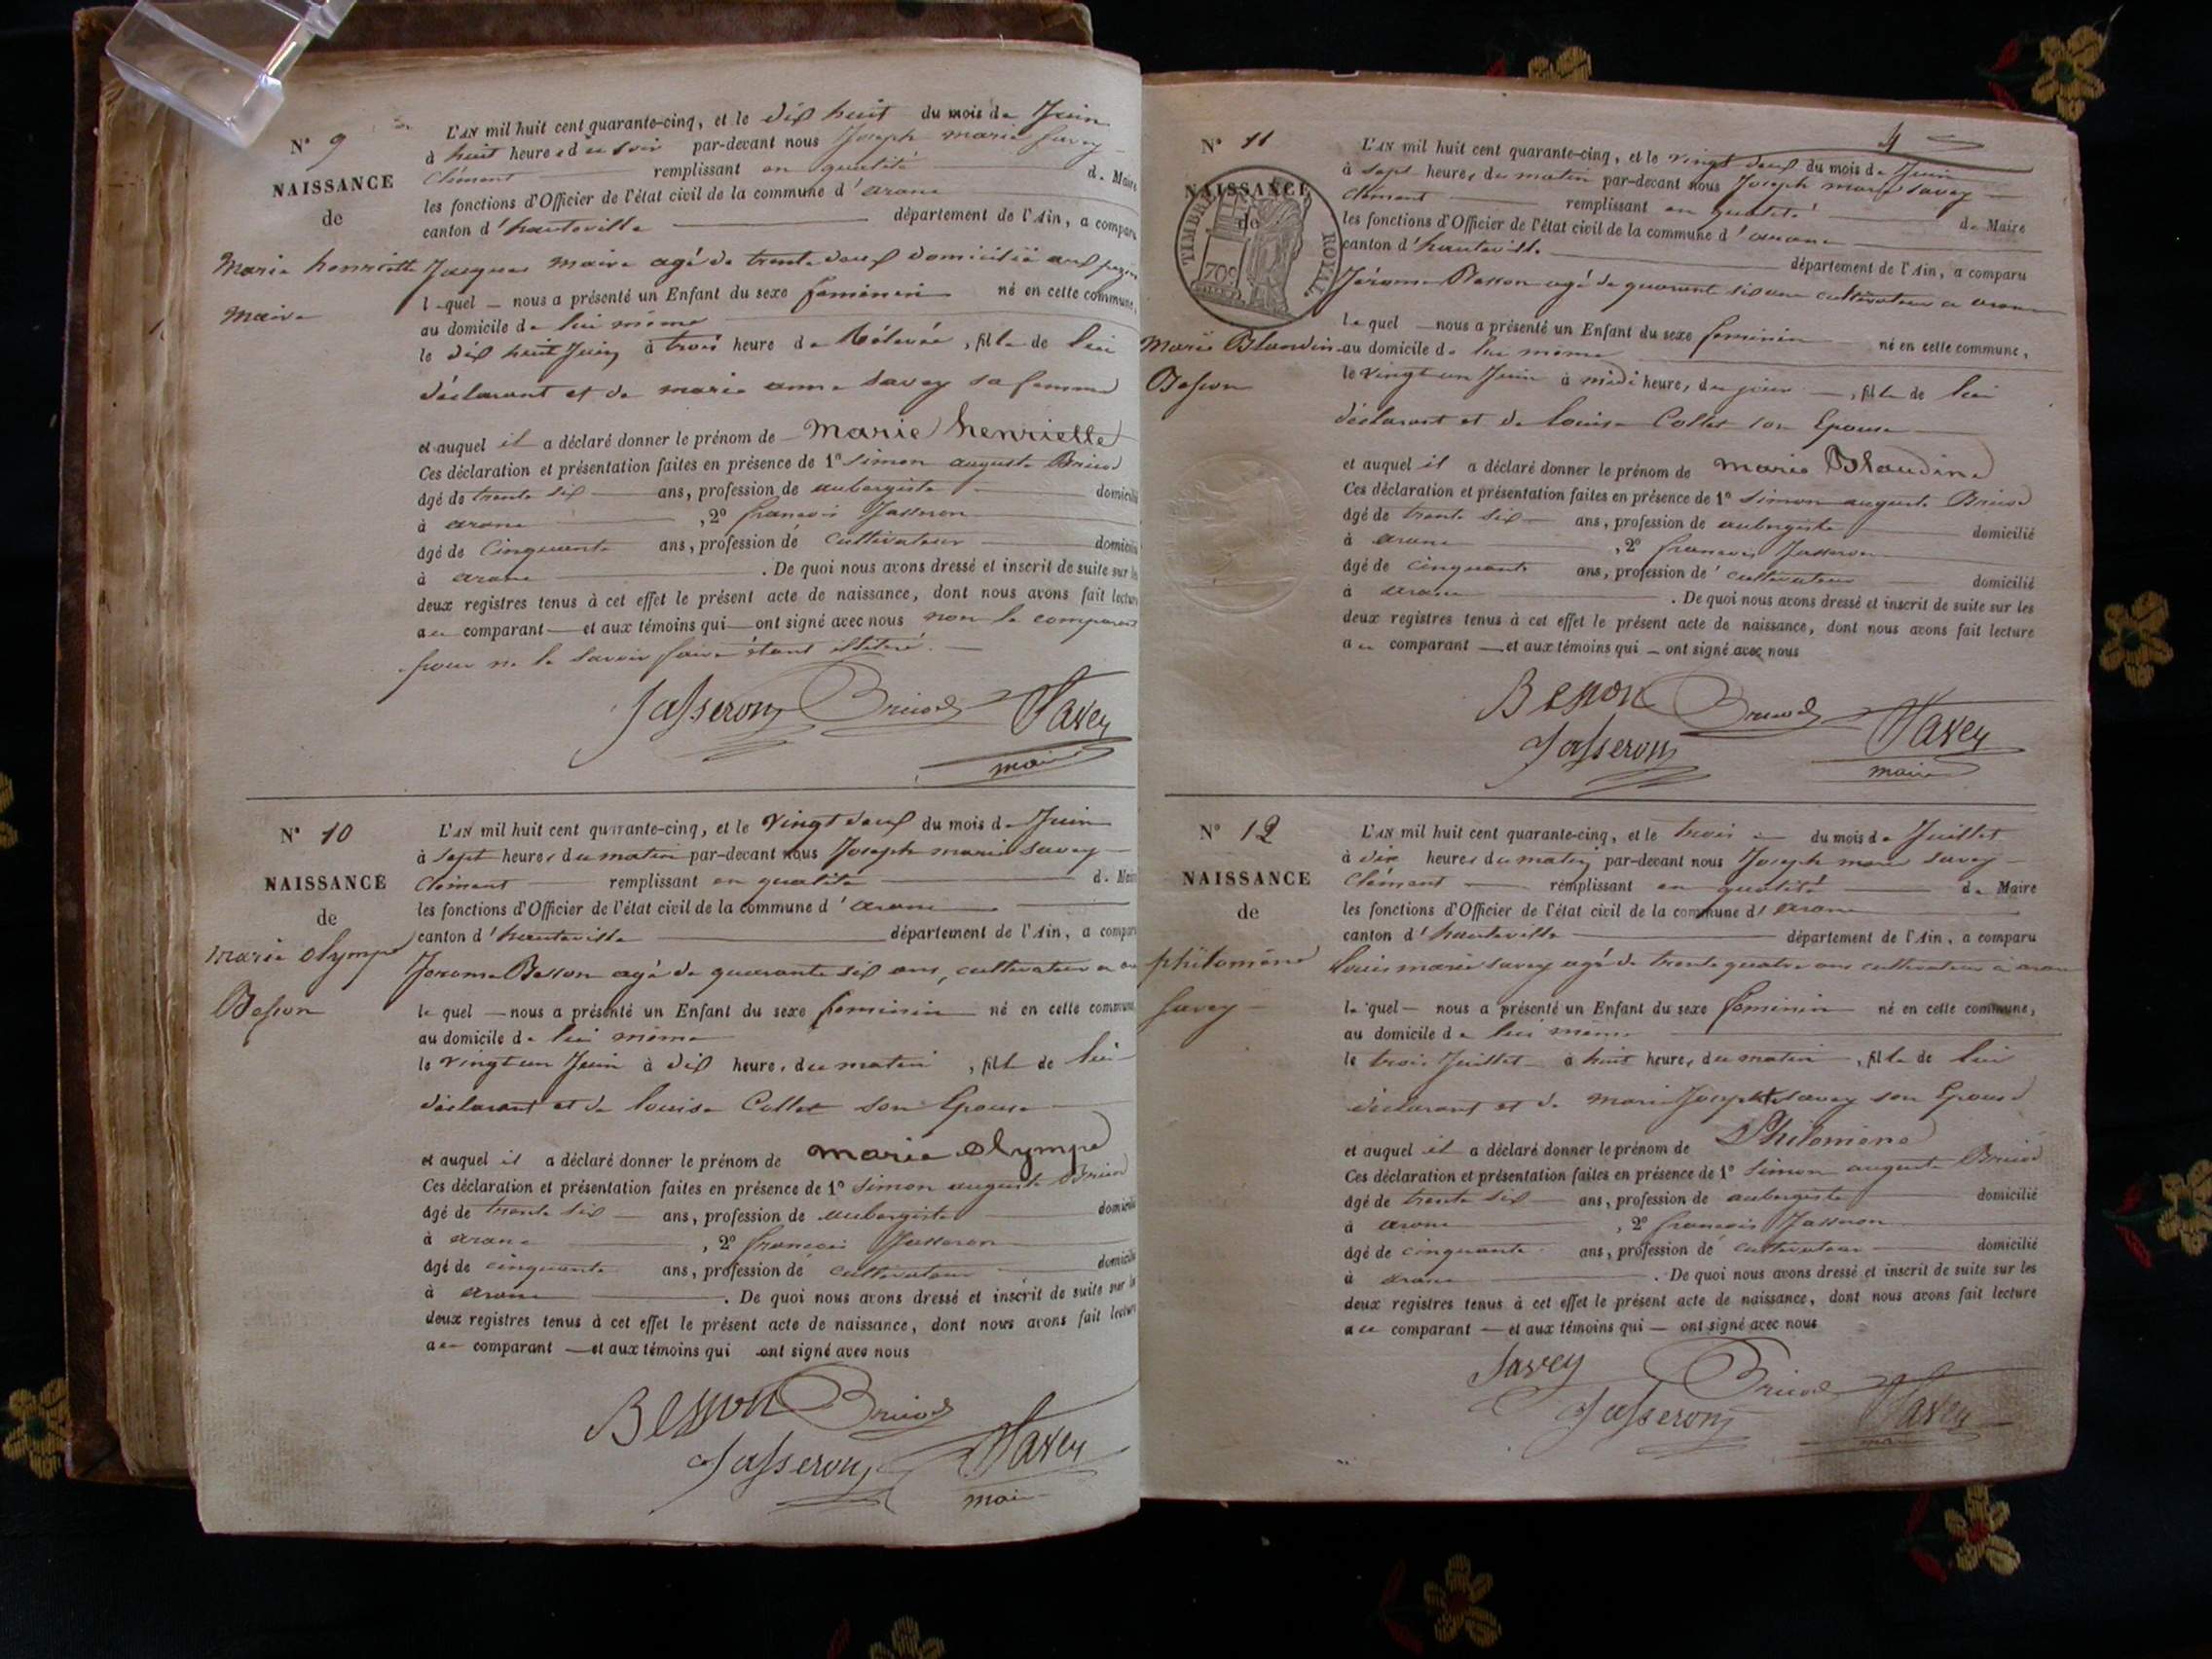 N° 9
NAISSANCE
de
Marie henriette
Maire
L'AN mil huit cent quarante-cinq, et le dix huit du mois de Juin
à huit heures du soir par-devant nous Joseph marie Savey
Clément remplissant en qualité de Maire
les fonctions d'Officier de l'état civil de la commune d'arane
canton d'hauteville département de l'Ain, a comparu
Jacques Maire agé de trente deux domicilié aux
lequel nous a présenté un Enfant du sexe feminin né en cette commune,
au domicile de lui même
le dix huit Juin à trois heure de Rélevée, fille de lui
déclarant et de marie anne Savey sa femme
et auquel il a déclaré donner le prénom de Marie henriette
Ces déclaration et présentation faites en présence de 1° Simon auguste Bricod
âgé de trente six ans, profession de aubergiste domicilié
à arane , 2° francois Jasseron
âgé de Cinquante ans, profession de Cultivateur domicilié
à arane . De quoi nous avons dressé et inscrit de suite sur les
deux registres tenus à cet effet le présent acte de naissance, dont nous avons fait lecture
au comparant et aux témoins qui ont signé avec nous non le comparant
pour ne le savoir faire étant illitéré.
Jasseron Bricod Savey
maire
N° 10
NAISSANCE
de
marie olympe
Besson
L'AN mil huit cent quarante-cinq, et le vingt deux du mois de Juin
à sept heures du matin par-devant nous Joseph marie Savey
Clément remplissant en qualité de Maire
les fonctions d'Officier de l'état civil de la commune d'arane
canton d'hauteville département de l'Ain, a comparu
Jerome Besson agé de quarante six ans, cultivateur a
lequel nous a présenté un Enfant du sexe feminin né en cette commune
au domicile de lui même
le vingt un Juin à dix heures du matin, fille de lui
déclarant et de louise Collet son Epouse
et auquel il a déclaré donner le prénom de marie olympe
Ces déclaration et présentation faites en présence de 1° Simon auguste Bricod
âgé de trente six ans, profession de aubergiste domicilié
à arane , 2° francois Jasseron
âgé de cinquante ans, profession de cultivateur domicilié
à arane . De quoi nous avons dressé et inscrit de suite sur les
deux registres tenus à cet effet le présent acte de naissance, dont nous avons fait lecture
au comparant et aux témoins qui ont signé avec nous
Besson Bricod
Jasseron Savey
maire
4
N° 11
NAISSANCE
de
TIMBRE ROYAL
70c
Marie Blandine
Besson
L'AN mil huit cent quarante-cinq, et le vingt deux du mois de Juin
à sept heures du matin par-devant nous Joseph marie Savey
Clément remplissant en qualité de Maire
les fonctions d'Officier de l'état civil de la commune d'arane
canton d'hauteville département de l'Ain, a comparu
Jérome Besson agé de quarante six ans cultivateur a arane
lequel nous a présenté un Enfant du sexe feminin né en cette commune,
au domicile de lui même
le vingt un Juin à midi heure, du jour, fille de lui
déclarant et de louise Collet son Epouse
et auquel il a déclaré donner le prénom de marie Blandine
Ces déclaration et présentation faites en présence de 1° Simon auguste Bricod
âgé de trente six ans, profession de aubergiste domicilié
à arane , 2° francois Jasseron
âgé de cinquante ans, profession de cultivateur domicilié
à arane . De quoi nous avons dressé et inscrit de suite sur les
deux registres tenus à cet effet le présent acte de naissance, dont nous avons fait lecture
au comparant et aux témoins qui ont signé avec nous
Besson Bricod Savey
Jasseron maire
N° 12
NAISSANCE
de
philomène
Savey
L'AN mil huit cent quarante-cinq, et le trois du mois de Juillet
à dix heures du matin par-devant nous Joseph marie Savey
Clément remplissant en qualité de Maire
les fonctions d'Officier de l'état civil de la commune d'arane
canton d'hauteville département de l'Ain, a comparu
louis marie Savey agé de trente quatre ans cultivateur à arane
lequel nous a présenté un Enfant du sexe feminin né en cette commune,
au domicile de lui même
le trois Juillet à huit heures du matin, fille de lui
déclarant et de marie Josephte Savey son Epouse
et auquel il a déclaré donner le prénom de Philomène
Ces déclaration et présentation faites en présence de 1° Simon auguste Bricod
âgé de trente six ans, profession de aubergiste domicilié
à arane , 2° francois Jasseron
âgé de cinquante ans, profession de cultivateur domicilié
à arane . De quoi nous avons dressé et inscrit de suite sur les
deux registres tenus à cet effet le présent acte de naissance, dont nous avons fait lecture
au comparant et aux témoins qui ont signé avec nous
Savey Bricod
Jasseron Savey
maire